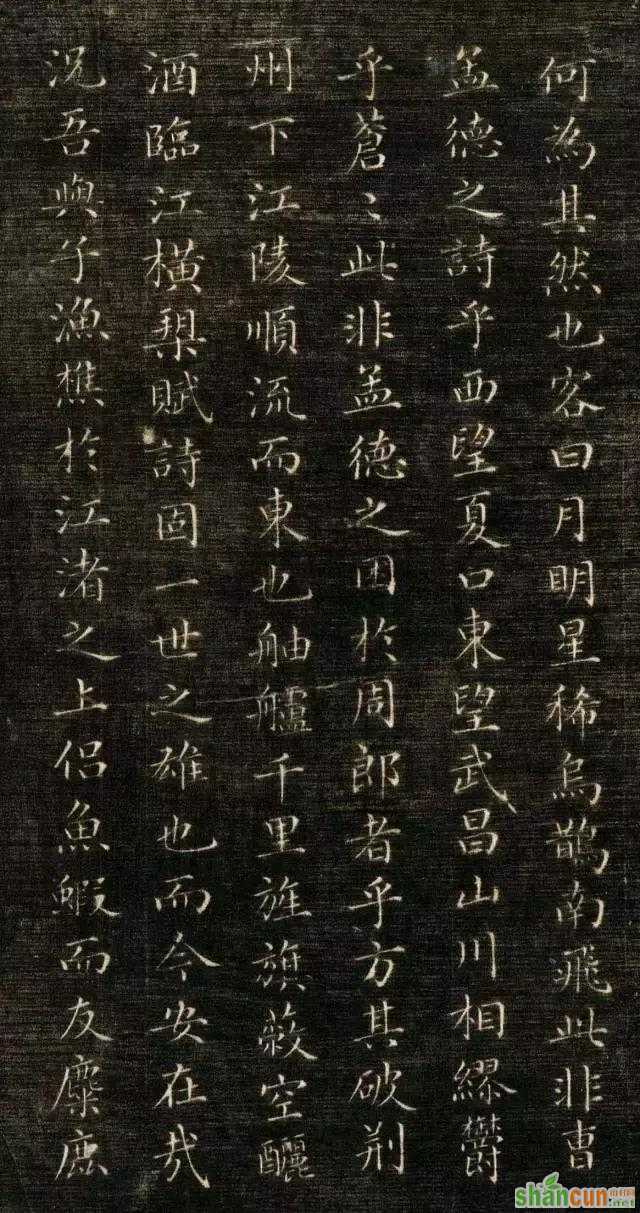 何為其然也客曰月明星稀烏鵲南飛此非曹
孟德之詩乎西望夏口東望武昌山川相繆鬱
乎蒼〻此非孟德之困於周郎者乎方其破荊
州下江陵順流而東也舳艫千里旌旗蔽空釃
酒臨江橫槊賦詩固一世之雄也而今安在哉
況吾與子漁樵於江渚之上侶魚蝦而友麋鹿
shancun
.net